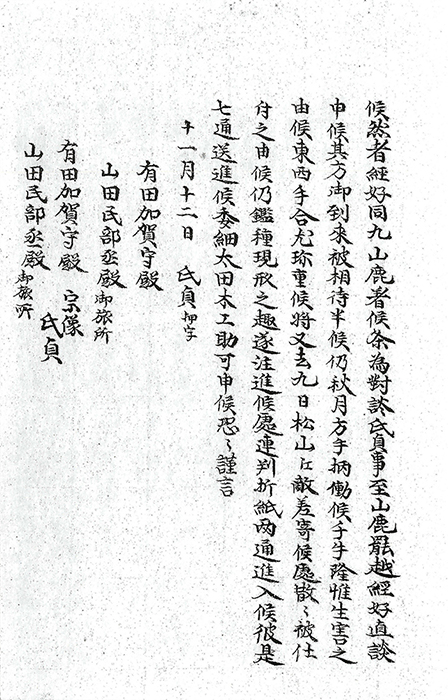 候然者経好同九山鹿着候条為対談氏貞事至山鹿罷越経好直談
申候其方御到来被相待半候仍秋月方手柄働候千手隆惟生害之
由候東西手合尤珍重候将又去九日松山江敵差寄候処散々被仕
付之由候仍鑑種現形之趣遂注進候処連判折紙両通進入候彼是
七通送進候委細太田木工助可申候恐々謹言
十一月十二日 氏貞 押字
有田加賀守殿
山田民部丞殿 御旅所
有田加賀守殿 宗像
氏貞
山田民部丞殿 御旅所